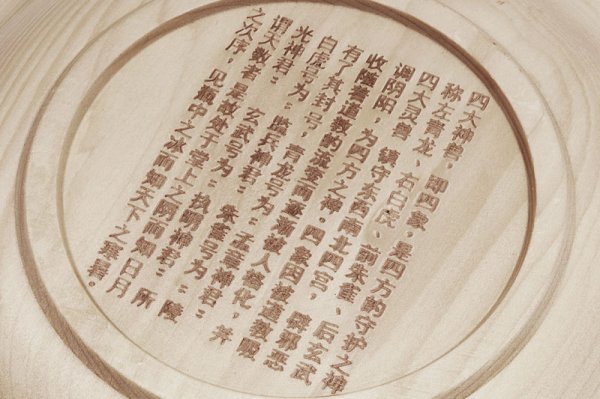 四大神兽，即四象，是四方的守护之神
称左青龙、右白虎、前朱雀、后玄武
四大灵兽，镇守东西南北四宫，辟邪恶
调阴阳。为四方之神。四象因被道教吸
收随着道教的流变而逐渐被人格化，并
有了其封号，青龙号为：孟章神君；
白虎号为：监兵神君；朱雀号为：陵
光神君；玄武号为：执明神君；所
谓天数者，是故处于堂上之阴而知日月
之次序，见瓶中之冰而知天下之寒暑。